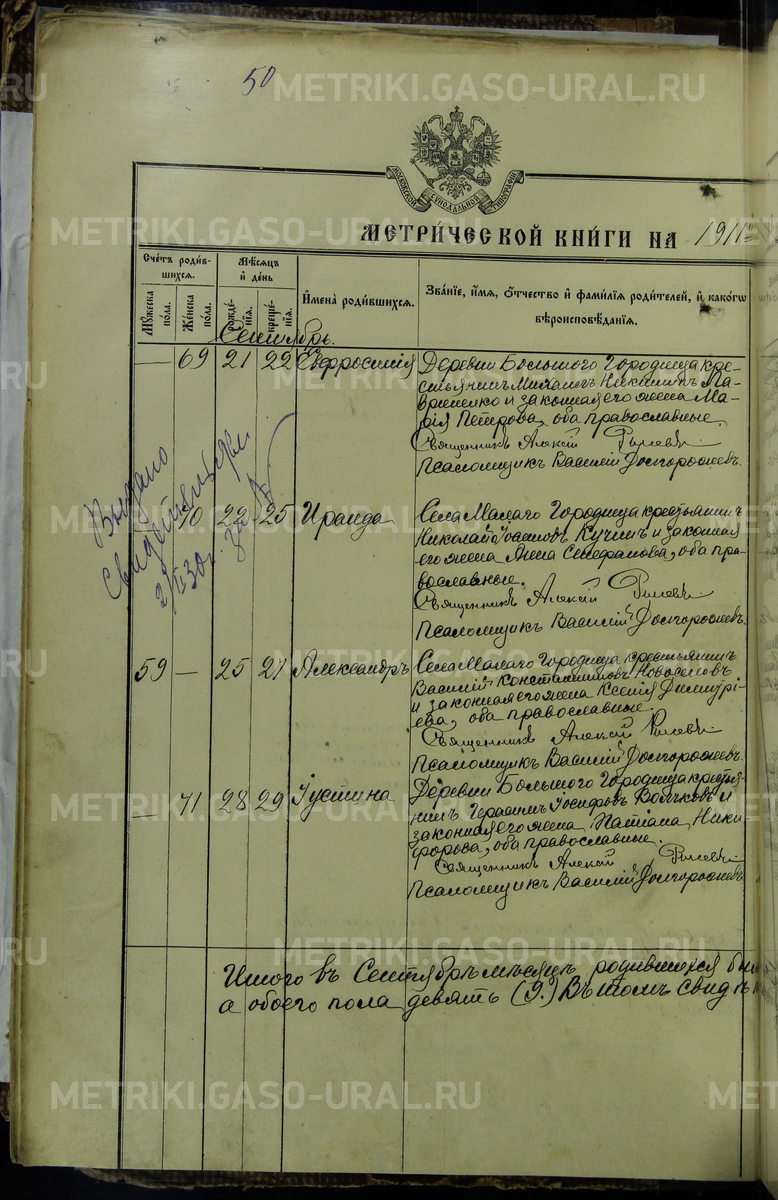 50
МОСКОВСКОЙ СѴНОДАЛЬНОЙ ТИПОГРАФІИ
МЕТРИ́ЧЕСКОЙ КНИ́ГИ НА 1911
Сче́тъ роди́в-
шихся.
Му́жеска по́ла.
Же́нска по́ла.
Мѣ́сяцъ
и҆ де́нь
рожде́нїя.
креще́нїя.
И҆мена̀ роди́вшихся.
Зва́нїе, и҆́мя, ѻ҆́тчество и҆ фами́лїя роди́телей, и҆ како́гѡ
вѣроисповѣ́данїя.
Сентябрь.
— 69 21 22 Евфросинія
Деревни Большого Городища кре-
стьянинъ Михаилъ Никитинъ Га-
вриленко и законная его жена Ма-
рія Петрова, оба православные.
Священникъ Алексій
Псаломщикъ Василій Долгорожевъ.
Выдано
свидетельство
— 70 22 25 Ираида
Села Малаго Городища крестьянинъ
Николай Іоасафовъ Кучинъ и законная
его жена Анна Стефанова, оба пра-
вославные.
Священникъ Алексій
Псаломщикъ Василій Долгорожевъ.
59 — 25 27 Александръ
Села Малаго Городища крестьянинъ
Василій Константиновъ Новоселовъ
и законная его жена Ксенія Димитрі-
ева, оба православные.
Священникъ Алексій
Псаломщикъ Василій Долгорожевъ.
— 71 28 29 Іустина
Деревни Большого Городища крестья-
нинъ Герасимъ Іосифовъ Волчковъ и
законная его жена Татіана Ники-
форова, оба православные.
Священникъ Алексій
Псаломщикъ Василій Долгорожевъ
Итого въ Сентябрѣ мѣсяцѣ родившихся
а обоего пола девять (9.) Въ томъ
METRIKI.GASO-URAL.RU